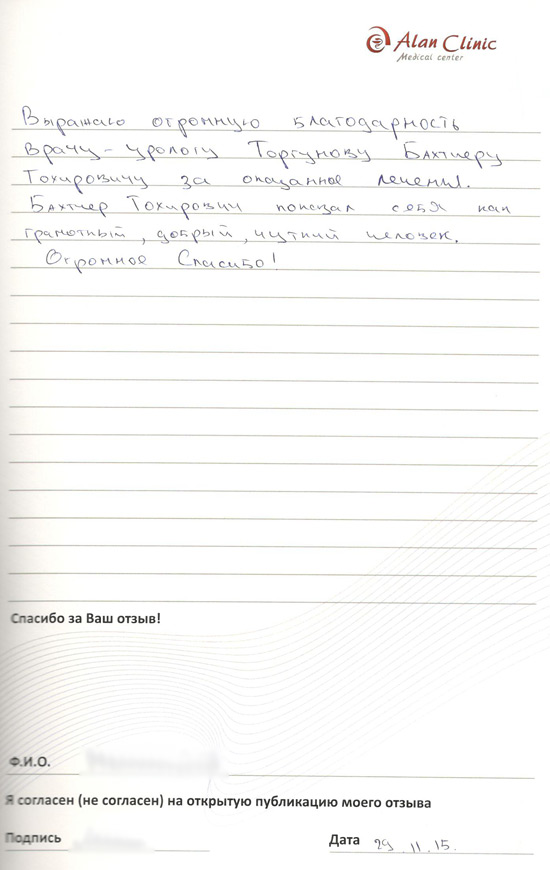 Alan Clinic
Medical center
Выражаю огромную благодарность
врачу-урологу Торгунову Бахтиеру
Тохировичу за оказанное лечение.
Бахтиер Тохирович показал себя как
грамотный, добрый, чуткий человек.
Огромное Спасибо!
Спасибо за Ваш отзыв!
Ф.И.О.
Я согласен (не согласен) на открытую публикацию моего отзыва
Подпись
Дата 29.11.15.